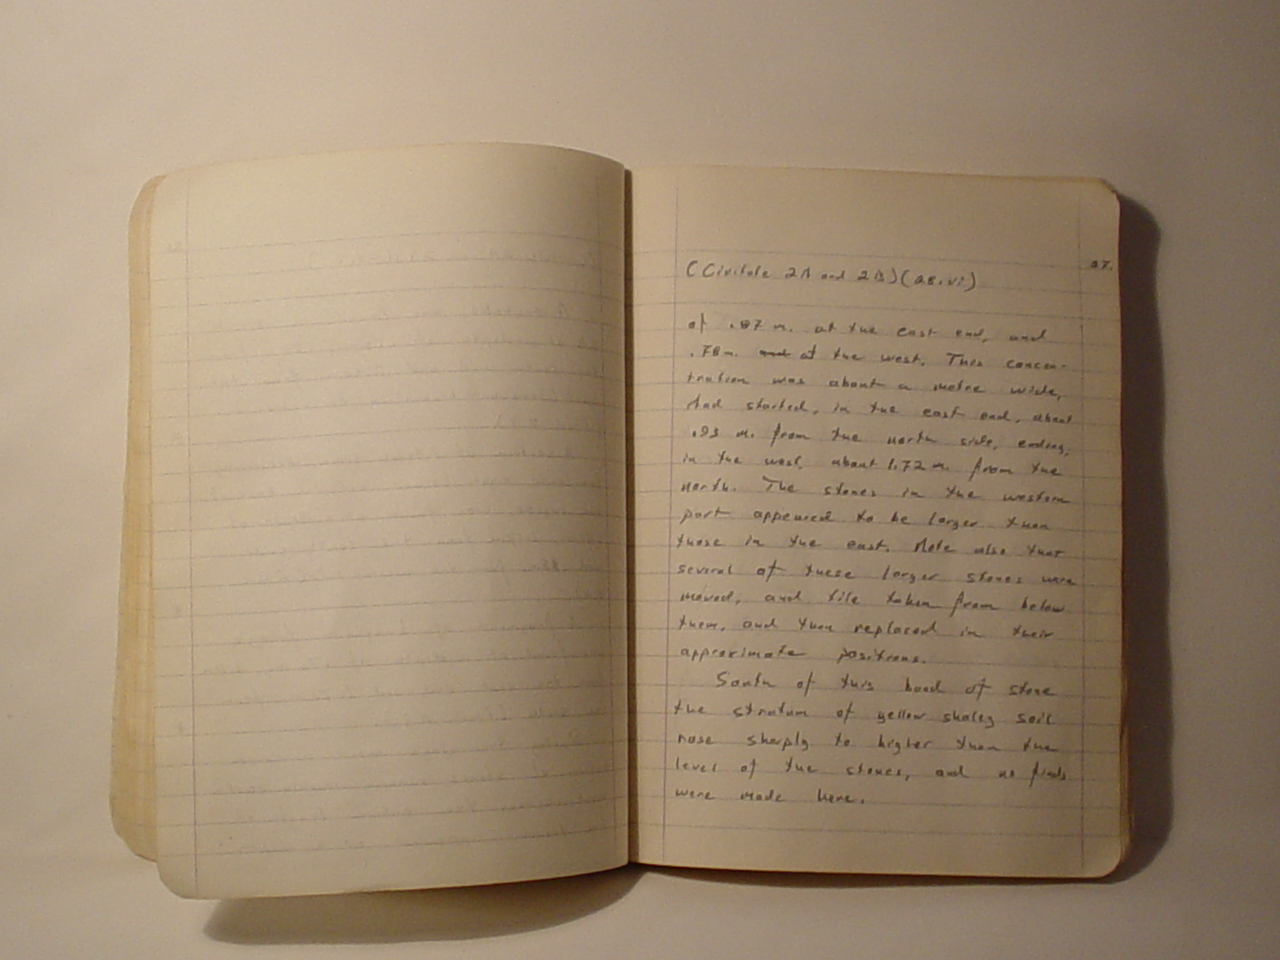 27.
(Civitate 2A and 2B) (28.vi)
of .87 m. at the east end, and
.78 m. and at the west. This concen-
tration was about a metre wide,
And started, in the east end, about
.93 m. from the north side, ending,
in the west, about 1.72 m. from the
north. The stones in the western
part appeared to be larger than
those in the east. Note also that
several of these larger stones were
moved, and tile taken from below
them, and then replaced in their
approximate positions.
South of this band of stone
the stratum of yellow shaley soil
rose sharply to higher than the
level of the stones, and no finds
were made here.